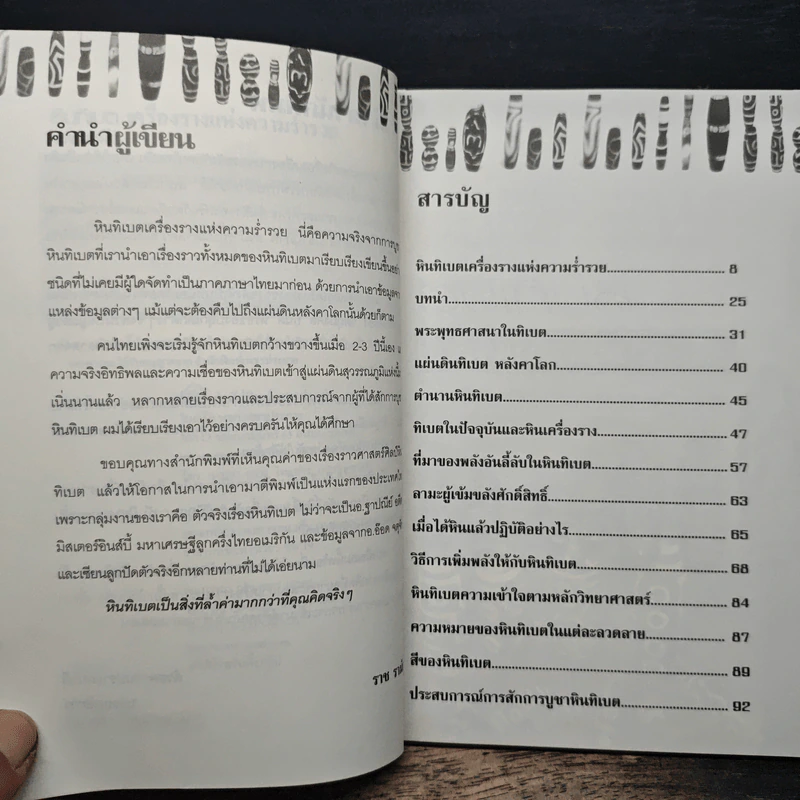 คำนำผู้เขียน
หินทิเบตเครื่องรางแห่งความร่ำรวย นี่คือความจริงจากการบูชา
หินทิเบตที่เรานำเอาเรื่องราวทั้งหมดของหินทิเบตมาเรียบเรียงเขียนขึ้นอย่าง
ชนิดที่ไม่เคยมีผู้ใดจัดทำเป็นภาคภาษาไทยมาก่อน ด้วยการนำเอาข้อมูลจาก
แหล่งข้อมูลต่างๆ แม้แต่จะต้องคืบไปถึงแผ่นดินหลังคาโลกนั้นด้วยก็ตาม
คนไทยเพิ่งจะเริ่มรู้จักหินทิเบตกว้างขวางขึ้นเมื่อ 2-3 ปีนี้เอง
ความจริงอิทธิพลและความเชื่อของหินทิเบตเข้าสู่แผ่นดินสุวรรณภูมิแห่งนี้
เนิ่นนานแล้ว หลากหลายเรื่องราวและประสบการณ์จากผู้ที่ได้สักการะ
หินทิเบต ผมได้เรียบเรียงเอาไว้อย่างครบครันให้คุณได้ศึกษา
ขอบคุณทางสำนักพิมพ์ที่เห็นคุณค่าของเรื่องราวศาสตร์ศิลป์
ทิเบต แล้วให้โอกาสในการนำเอามาตีพิมพ์เป็นแห่งแรกของประเทศ
เพราะกลุ่มงานของเราคือ ตัวจริงเรื่องหินทิเบต ไม่ว่าจะเป็นอ.ฐาปณีย์
มิสเตอร์อินส์บี้ มหาเศรษฐีลูกครึ่งไทยอเมริกัน และข้อมูลจากอ.อ๊อด
และเซียนลูกปัดตัวจริงอีกหลายท่านที่ไม่ได้เอ่ยนาม
หินทิเบตเป็นสิ่งที่ล้ำค่ามากกว่าที่คุณคิดจริงๆ
ราช
สารบัญ
หินทิเบตเครื่องรางแห่งความร่ำรวย 8
บทนำ 25
พระพุทธศาสนาในทิเบต 31
แผ่นดินทิเบต หลังคาโลก 40
ตำนานหินทิเบต 45
ทิเบตในปัจจุบันและหินเครื่องราง 47
ที่มาของพลังอันลี้ลับในหินทิเบต 57
ลามะผู้เข้มขลังศักดิ์สิทธิ์ 63
เมื่อได้หินแล้วปฏิบัติอย่างไร 65
วิธีการเพิ่มพลังให้กับหินทิเบต 68
หินทิเบตความเข้าใจตามหลักวิทยาศาสตร์ 84
ความหมายของหินทิเบตในแต่ละลวดลาย 87
สีของหินทิเบต 89
ประสบการณ์การสักการบูชาหินทิเบต 92